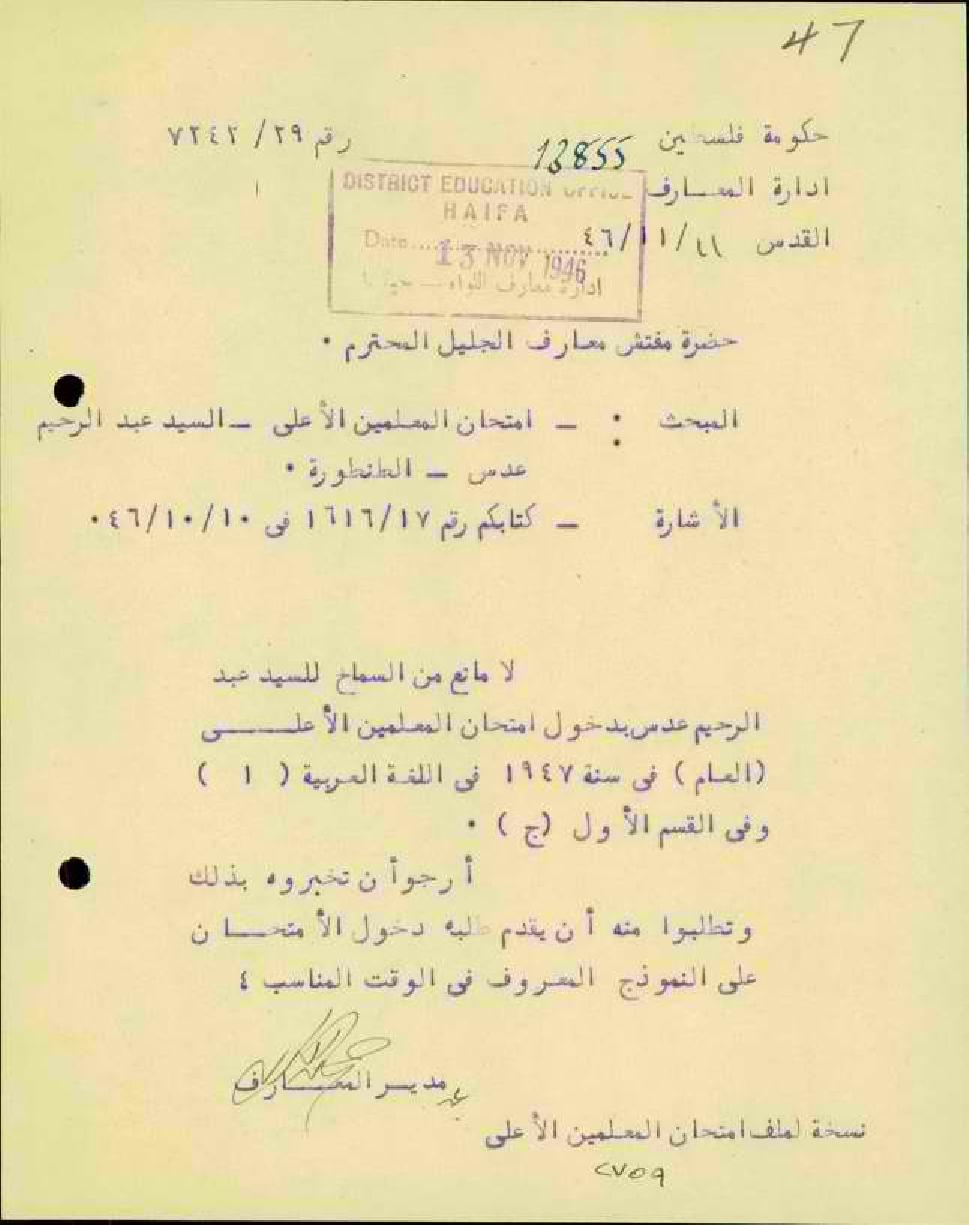 47
حكومة فلسطين
رقم ٢٩/ ٧٢٤٢
13855
ادارة المعــارف
DISTRICT EDUCATION OFFICE
HAIFA
Date
13 NOV 1946
ادارة معارف اللواء — حيفا
القدس /١١/٤٦
حضرة مفتش معارف الجليل المحترم ٠
المبحث : — امتحان المعلمين الأعلى — السيد عبد الرحيم
عدس — الطنطورة ٠
الأشارة — كتابكم رقم ١٦١٦/١٧ فى ٤٦/١٠/١٠٠
لا مانع من السماح للسيد عبد
الرحيم عدس بدخول امتحان المعلمين الأعلــــى
(العام) فى سنة ١٩٤٧ فى اللغة العربية ( ١ )
وفى القسم الأول (ج) ٠
أرجو أن تخبروه بذلك
وتطلبوا منه أن يقدم طلبه دخول الأمتحــان
على النموذج المعروف فى الوقت المناسب ٤
مديــر المعــــارف
نسخة لملف امتحان المعلمين الأعلى
٢٧٥٩